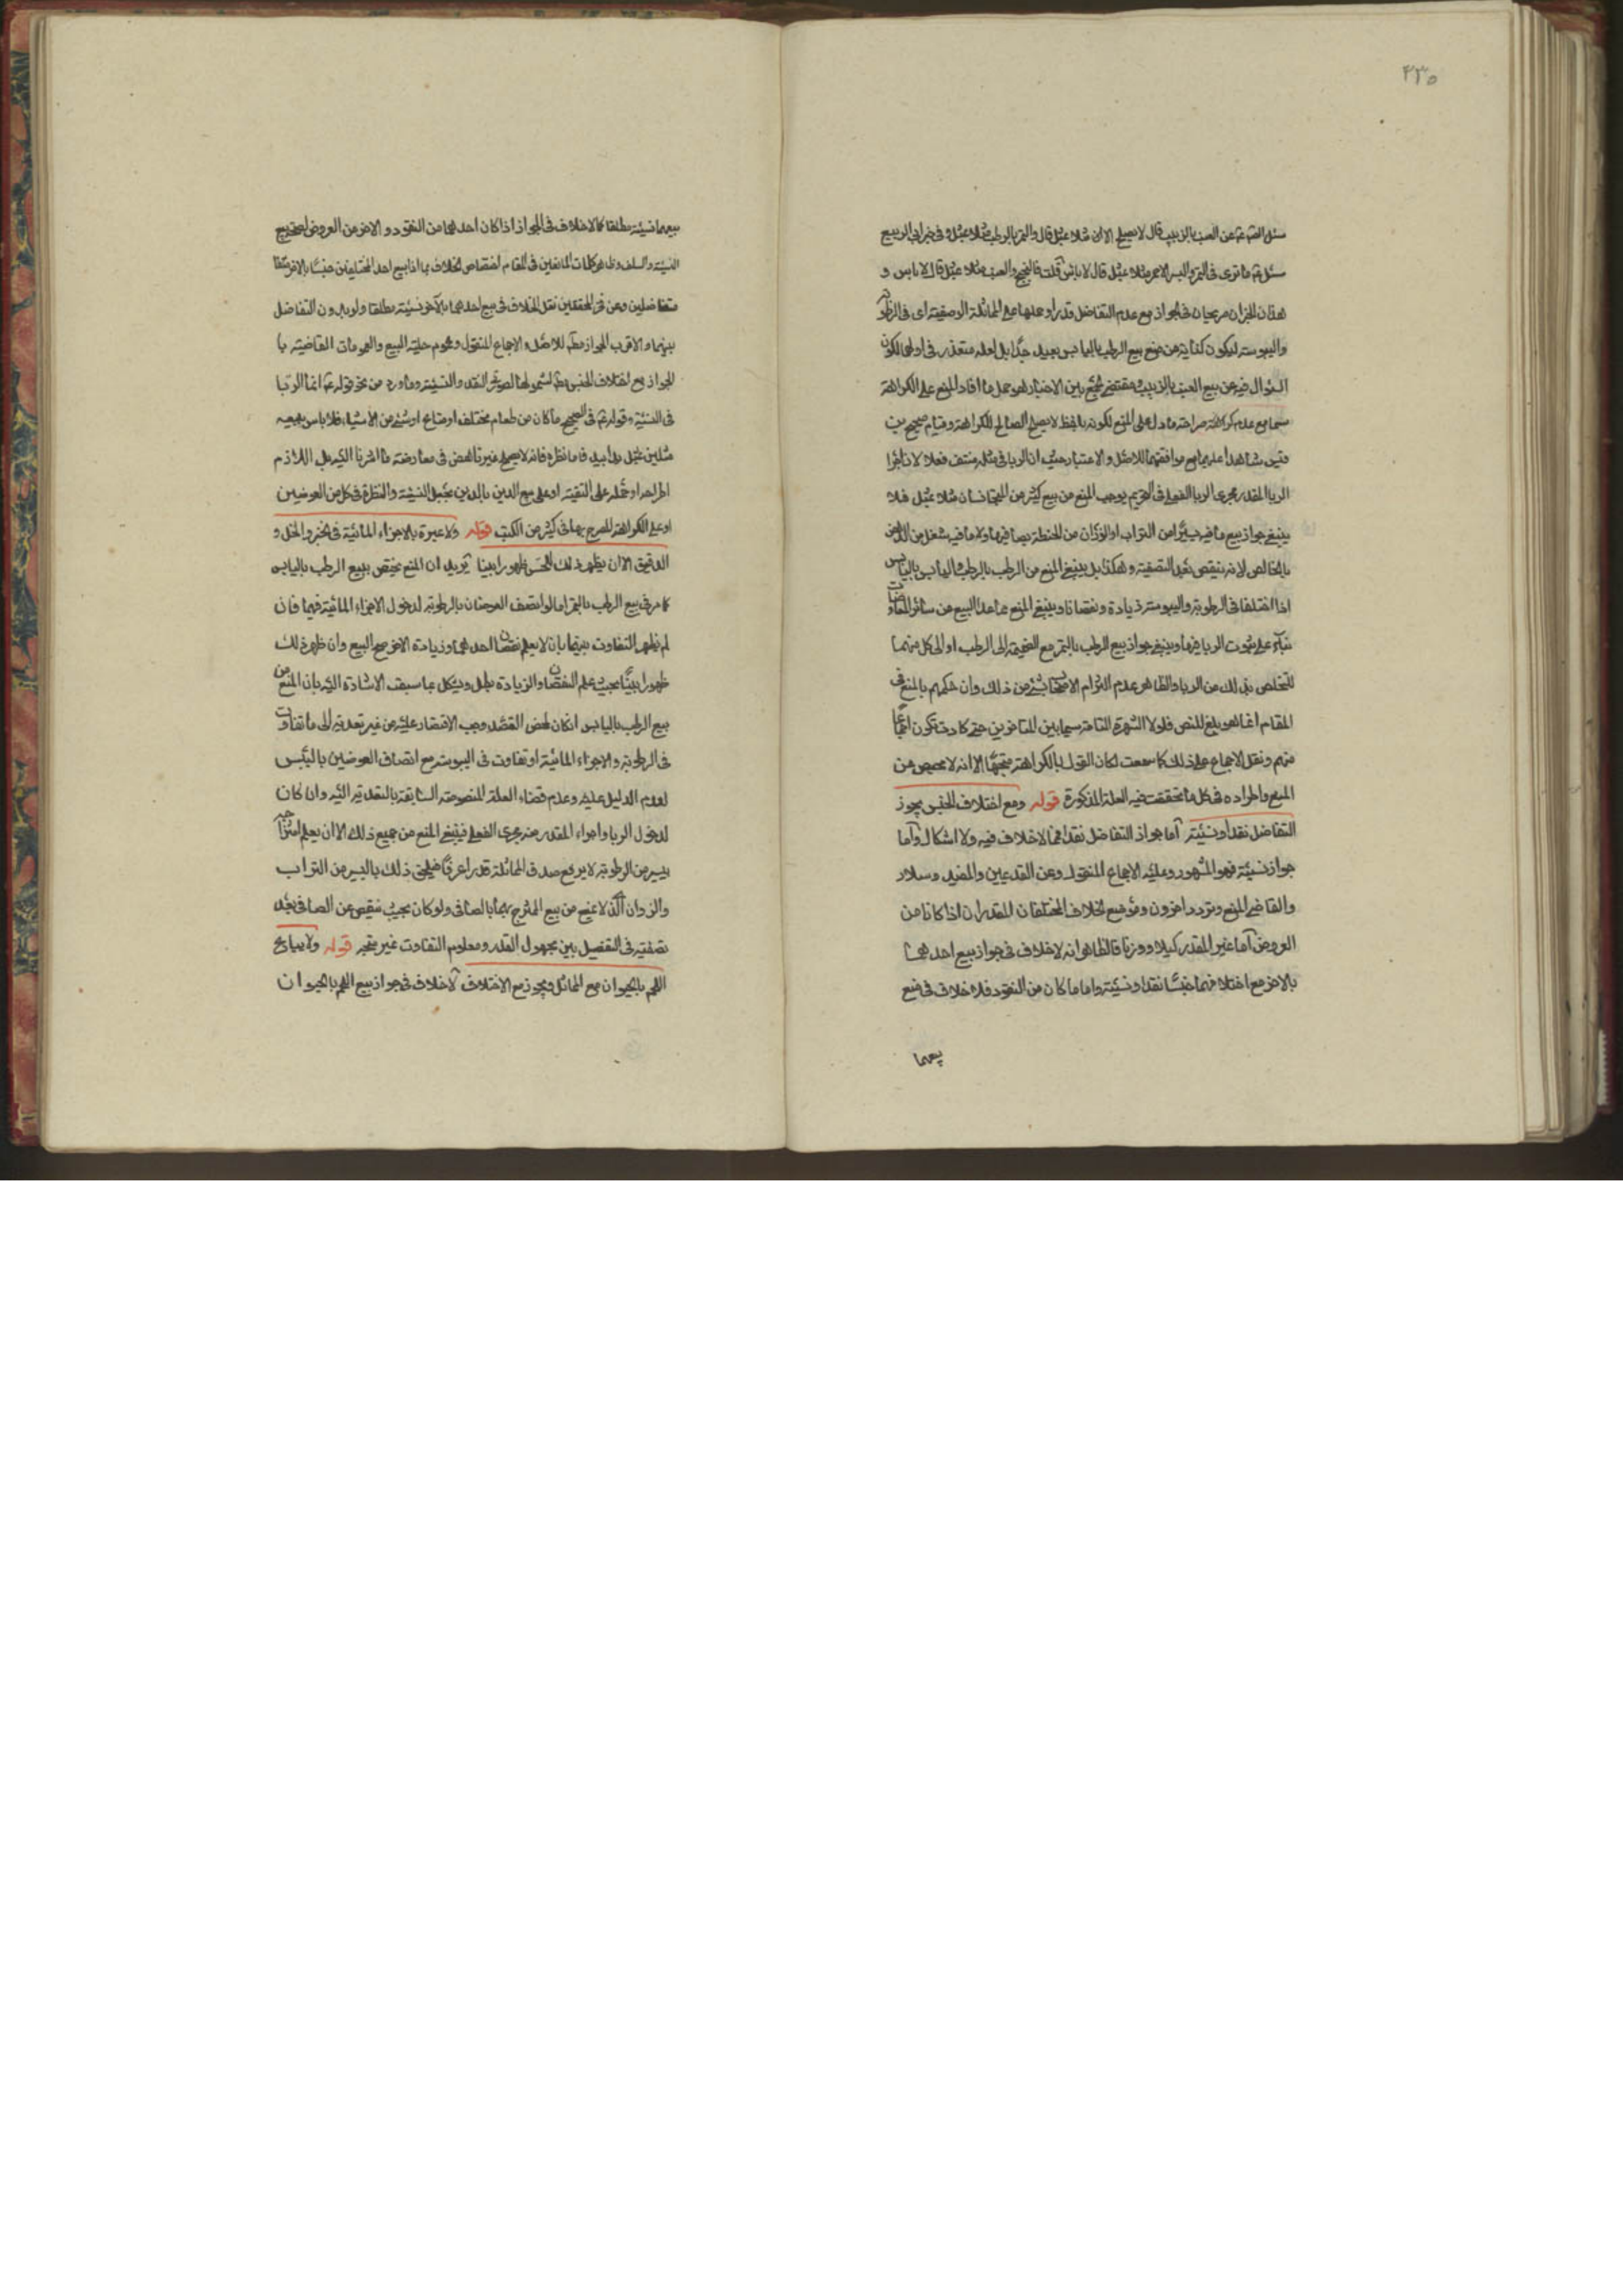 ٤٣٥
سئل الصّ عم عن العنب بالزبيب قال لا يصلح الا ان مثلا بمثل قال والتمر بالرطب مثلا بمثل وفى خبر ابى الربيع
سئل عم ما ترى فى التمر والبسر الاحمر مثلا بمثل قال لا باس قلت فالبختج والعنب مثلا بمثل قال لا باس و
هذان الخبران صريحان فى الجواز مع عدم التفاضل قدرا وحملها على المماثلة الوصفية اى فى الرطوبة
واليبوسة ليكون كناية عن منع بيع الرطب باليابس بعيد جدّا بل لعله متعذر فى اولهما لكون
السؤال فيه عن بيع العنب بالزبيب ومقتضى الجمع بين الاخبار هو حمل ما افاد المنع على الكراهة
سيما مع عدم صراحة ما دل على المنع لكونه بلفظ لا يصلح الصالح للكراهة وقيام صحيحين
شاهدا عليهما مع موافقتهما للاصل والاعتبار حيث ان الربا فى مثله منتف فعلا لان اجراء
الربا المقدر مجرى الربا الفعلى فى التحريم يوجب المنع من بيع كثير من المتجانسان مثلا بمثل فلا
ينبغى جواز بيع ما فيه يسيرا من التراب او الزوان من الحنطة بصافيها ولا ما فيه شغل من
بالخالص لانه ينقص بعد التصفية وهكذا بل ينبغى المنع من الرطب بالرطب واليابس باليابس
اذا اختلفا فى الرطوبة واليبوسة زيادة ونقصانا وينبغى المنع عما عدا البيع من سائر المعاوضات
بناء على ثبوت الربا فيها وينبغى جواز بيع الرطب بالتمر مع الضميمة الى الرطب او الى كل منهما
للتخلص بذلك من الربا والظاهر عدم التزام الاصحاب بشئ من ذلك وان حكمهم بالمنع فى
المقام انما هو للنص فلولا الشهرة التامة سيما بين المتاخرين حتى كادت تكون اجماعا
منهم ونقل الاجماع على ذلك كما سمعت لكان القول بالكراهة متجها الا انه لا محيص عن
المنع واطراده فى كل ما تحققت فيه العلة المذكورة قوله ومع اختلاف الجنس يجوز
التفاضل نقدا ونسيئة اما جواز التفاضل نقدا فما لا خلاف فيه ولا اشكال واما
جوازه نسيئة فهو المشهور وعليه الاجماع المنقول وعن القديمين والمفيد وسلار
والقاضى المنع وتردد اخرون وموضع الخلاف المختلفان المقدران اذا كانا من
العروض اما غير المقدر كيلا ووزنا فالظاهر انه لا خلاف فى جواز بيع احدهما
بالاخر مع اختلافهما جنسا نقدا ونسيئة واما ما كان من النقود فلا خلاف فى منع
بيعهما
بيعهما نسيئة مطلقا كما لا خلاف فى الجواز اذا كان احدهما من النقود والاخر من العروض
النسيئة والسلف وظاهر كلمات المانعين فى المقام اختصاص الخلاف بما اذا بيع احد المختلفين جنسا بالاخر
متفاضلين وعن فخر المحققين نقل الخلاف فى بيع احدهما بالاخر نسيئة مطلقا ولو بدون التفاضل
بينهما والاقرب الجواز مطلقا للاصل والاجماع المنقول وعموم حلية البيع والعمومات القاضية با
لجواز مع اختلاف الجنس لشمولها لصورتى النقد والنسيئة وما ورد من نحو قوله عم انما الربا
فى النسيئة وقوله عم فى الصحيح ما كان من طعام مختلف او متاع او شئ من الاشياء فلا باس ببيعه
مثلين بمثل يدا بيد فاما نظرة فانه لا يصلح غير ناهض فى معارضة ما اشرنا اليه بل اللازم
اطراحه او حمله على التقية او على بيع الدين بالدين بجعل النسيئة والنظرة فى كل من العوضين
او على الكراهة المصرح بها فى كثير من الكتب قوله ولا عبرة بالاجزاء المائية فى الخبز والخل و
الدقيق الا ان يظهر ذلك للحس ظهورا بينا يريد ان المنع يختص ببيع الرطب باليابس
كما مر فى بيع الرطب بالتمر اما لو اتصف العوضان بالرطوبة لدخول الاجزاء المائية فيهما فان
لم يظهر التفاوت بينهما بان لا يعلم نقصان احدهما وزيادة الاخر صح البيع وان ظهر ذلك
ظهورا بينا بحيث علم النقصان والزيادة بطل ويشكل بما سبقت الاشارة اليه بان المنع من
بيع الرطب باليابس ان كان لمحض التعبد وجب الاقتصار عليه من غير تعدية الى ما تفاوت
فى الرطوبة والاجزاء المائية او تفاوت فى اليبوسة مع اتصاف العوضين باليبس
لعدم الدليل عليه وعدم قضاء العلة المنصوصة السابقة بالتعدية اليه وان كان
لدخول الربا واجراء المقدر منه مجرى الفعلى فينبغى المنع من جميع ذلك الا ان يعلم امتزاجه
بيسير من الرطوبة لا يرفع صدق المماثلة قدرا عرفا فيلحق ذلك باليسير من التراب
والزوان الذى لا يمنع من بيع الممتزج بهما بالصافى ولو كان بحيث ينقص عن الصافى بعد
تصفيته فى التفصيل بين مجهول القدر ومعلوم التفاوت غير متجه قوله ولا يباع
اللحم بالحيوان مع التماثل ويجوز مع الاختلاف لا خلاف فى جواز بيع اللحم بالحيوان